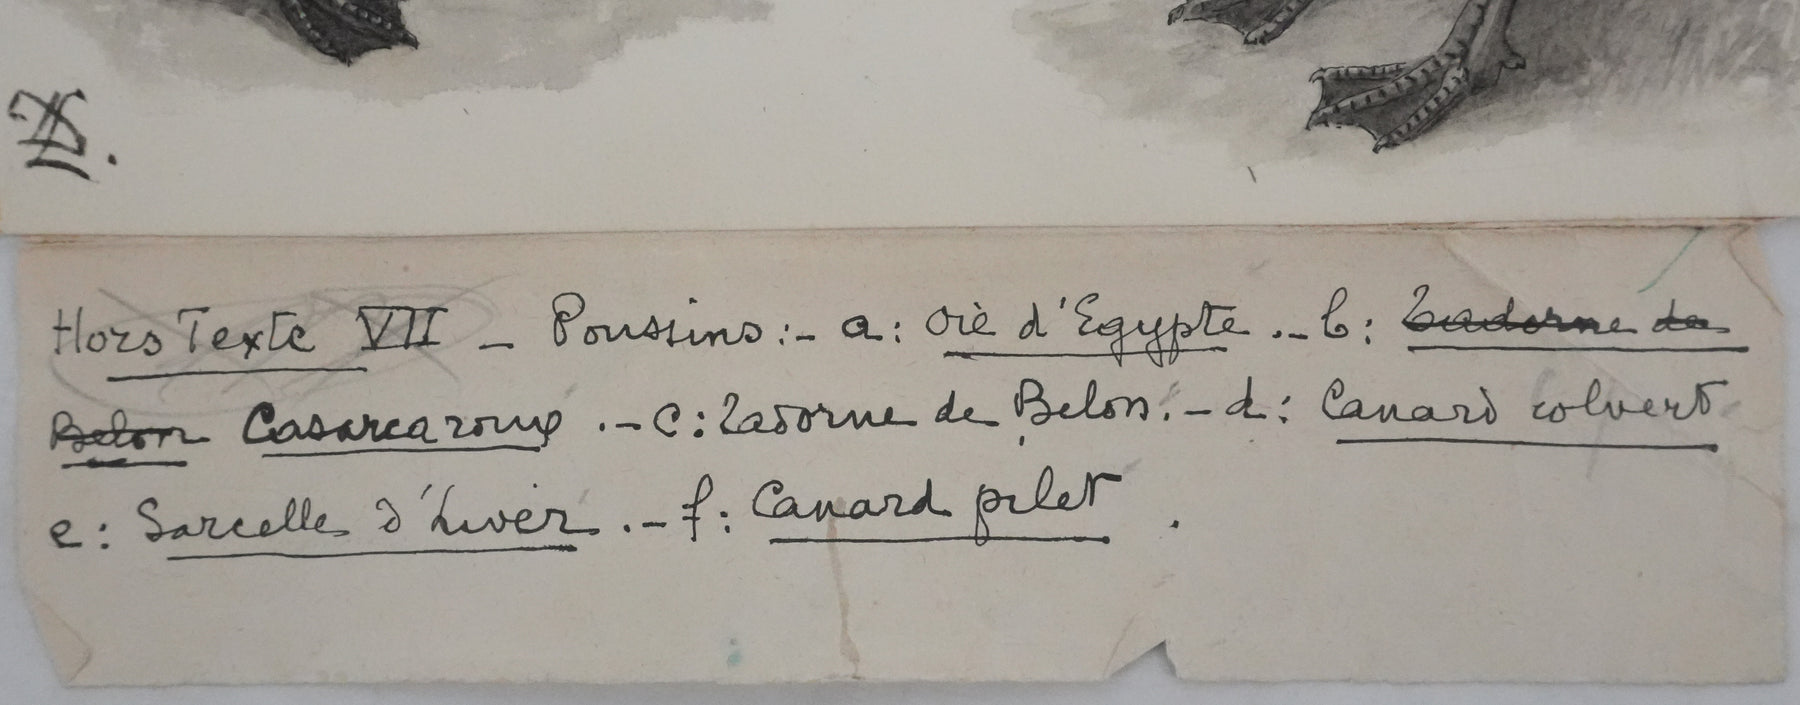 Hors Texte VII – Poussins :- a : oie d'Egypte .- b : Tadorne de
Belon Casarca roux .- c : Tadorne de Belon .- d : Canard colvert
e : Sarcelle d'hiver .- f : Canard pilet .